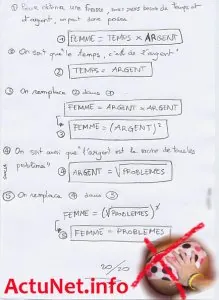 ① Pour obtenir une Femme, nous avons besoin de temps et
d'argent, on peut donc poser
① FEMME = TEMPS × ARGENT
② On sait que "le temps, c'est de l'argent"
② TEMPS = ARGENT
③ On remplace ② dans ①
FEMME = ARGENT × ARGENT
③ FEMME = (ARGENT)²
④ On sait aussi que "l'argent est la racine de tous les
problèmes"
④ ARGENT = √PROBLEMES
⑤ On remplace ④ dans ③
FEMME = (√PROBLEMES)²
⑤ FEMME = PROBLEMES
20/20
ActuNet.info